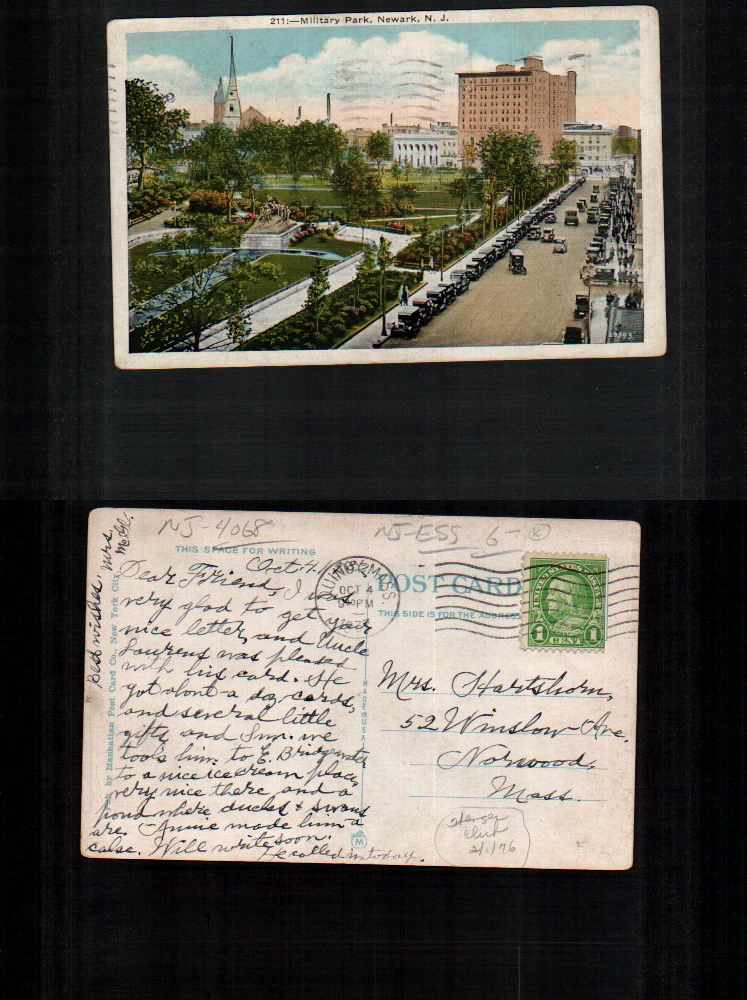 211:—Military Park, Newark, N. J.
NJ-4068
NJ-ESS 6-
THIS SPACE FOR WRITING
POST CARD
THIS SIDE IS FOR THE ADDRESS
OCT 4
PM
MASS
1 CENT 1
Oct. 4.
Dear Friend, I was
very glad to get your
nice letter, and Uncle
Laurens was pleased
with his card. He
got about a doz cards,
and several little
gifts and Sun. we
took him to E. Bridgewater
to a nice ice cream place,
very nice there and a
pond where ducks & swans
are. Annie made him a
cake. Will write soon.
He called in today.
Best wishes, Mrs.
by Manhattan Post Card Co., New York City
MADE IN USA
M
Mrs. Hartshorn,
52 Winslow Ave.
Norwood,
Mass.
Club
2/1/76